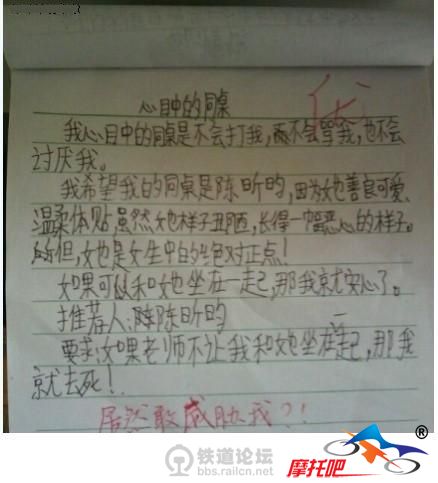 心目中的同桌
优
我心目中的同桌是不会打我,不会骂我,也不会
讨厌我。
我希望我的同桌是陈昕昀,因为她善良可爱、
温柔体贴,虽然她样子丑陋,长得一幅恶心的样子。
但,她是女生中的绝对正点!
如果可以和她坐在一起,那我就安心了。
推荐人:陈昕昀
要求:如果老师不让我和她坐在一起,那我
就去死!
居然敢威胁我?!
铁道论坛
bbs.railcn.net
摩托吧®